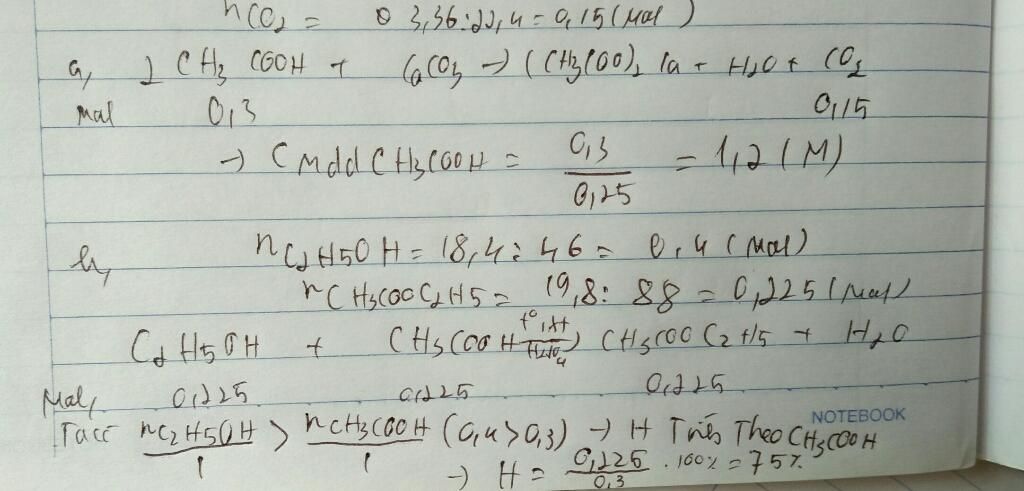 nCO2 = 3,36:22,4 = 0,15 (mol)
a, 2 CH3COOH + CaCO3 → (CH3COO)2 Ca + H2O + CO2
mol 0,3 0,15
→ CMdd CH3COOH = 0,3/0,25 = 1,2 (M)
b, nC2H5OH = 18,4 : 46 = 0,4 (mol)
nCH3COOC2H5 = 19,8 : 88 = 0,225 (mol)
C2H5OH + CH3COOH → CH3COOC2H5 + H2O
Mol, 0,225 0,225 0,225
Ta có nC2H5OH/1 > nCH3COOH/1 (0,4 > 0,3) → H Tính Theo CH3COOH
→ H = 0,225/0,3 . 100% = 75%
NOTEBOOK